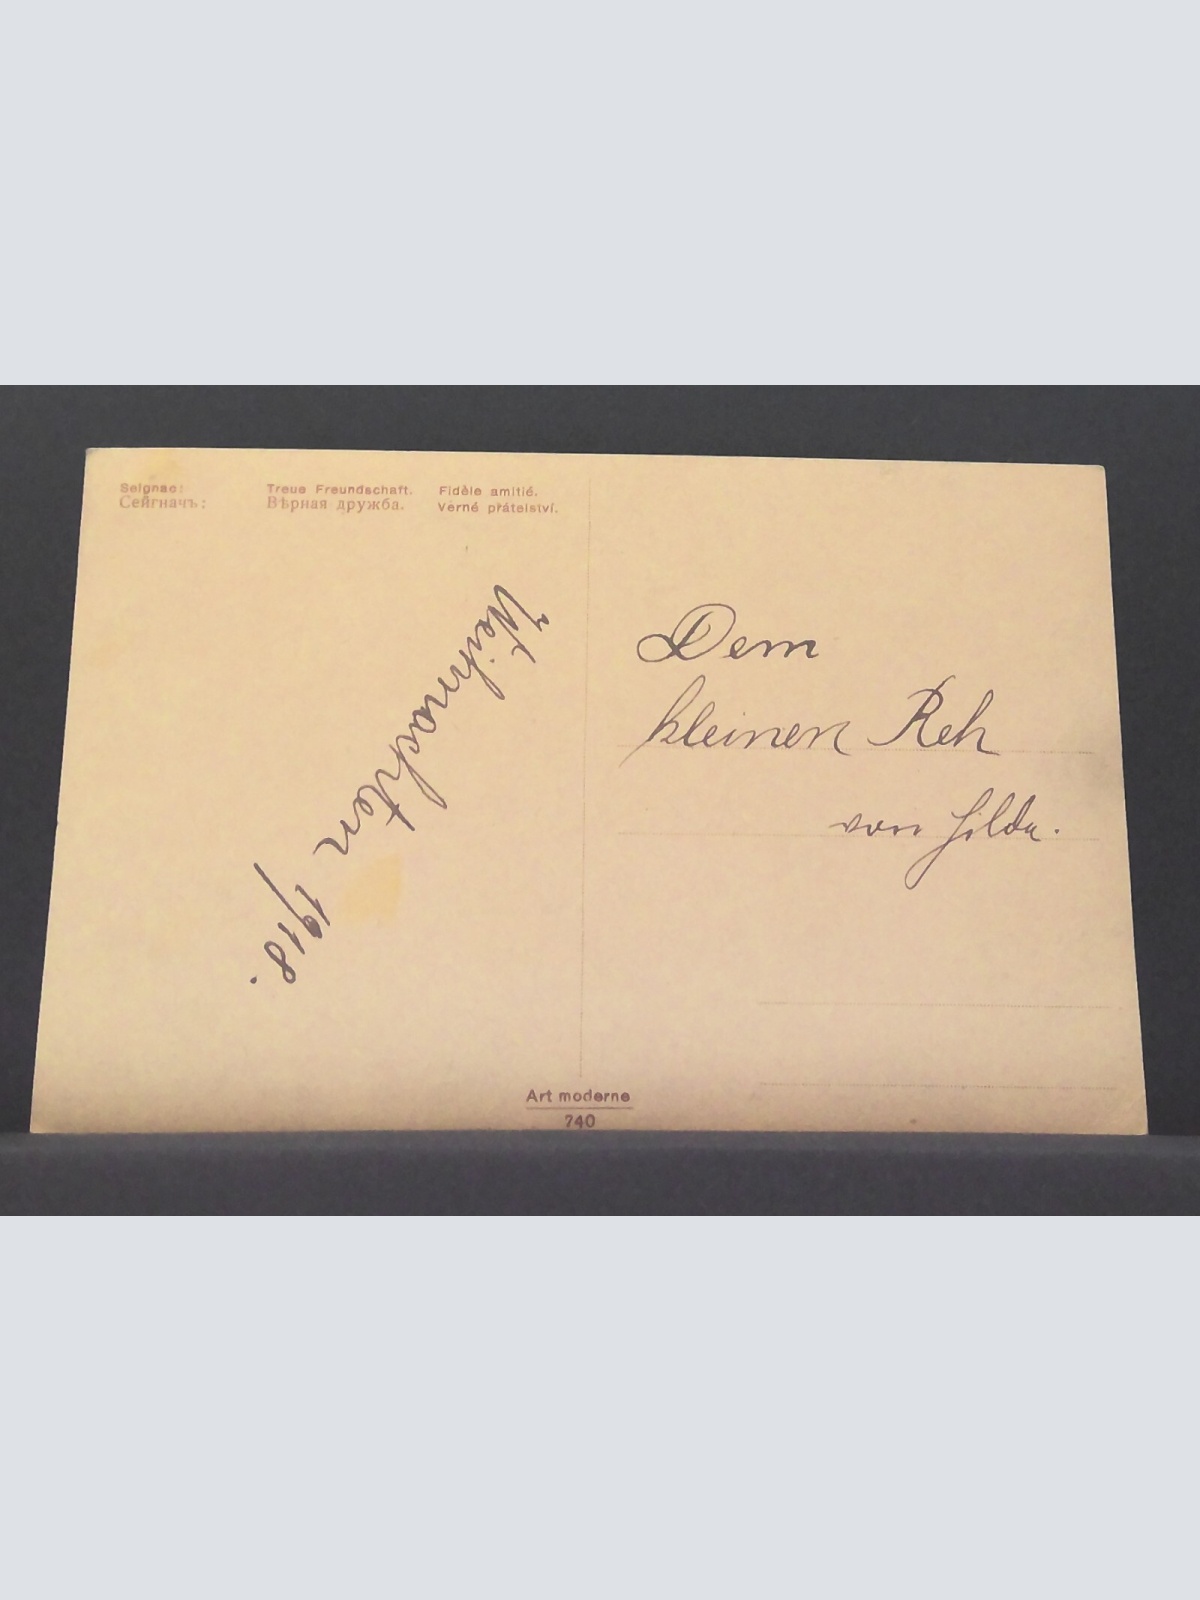 Seignac: Treue Freundschaft. Fidèle amitié.
Сейгначъ: Вѣрная дружба. Věrné přátelství.
Weihnachten 1918.
Dem
kleinen Reh
von Hilda.
Art moderne
740